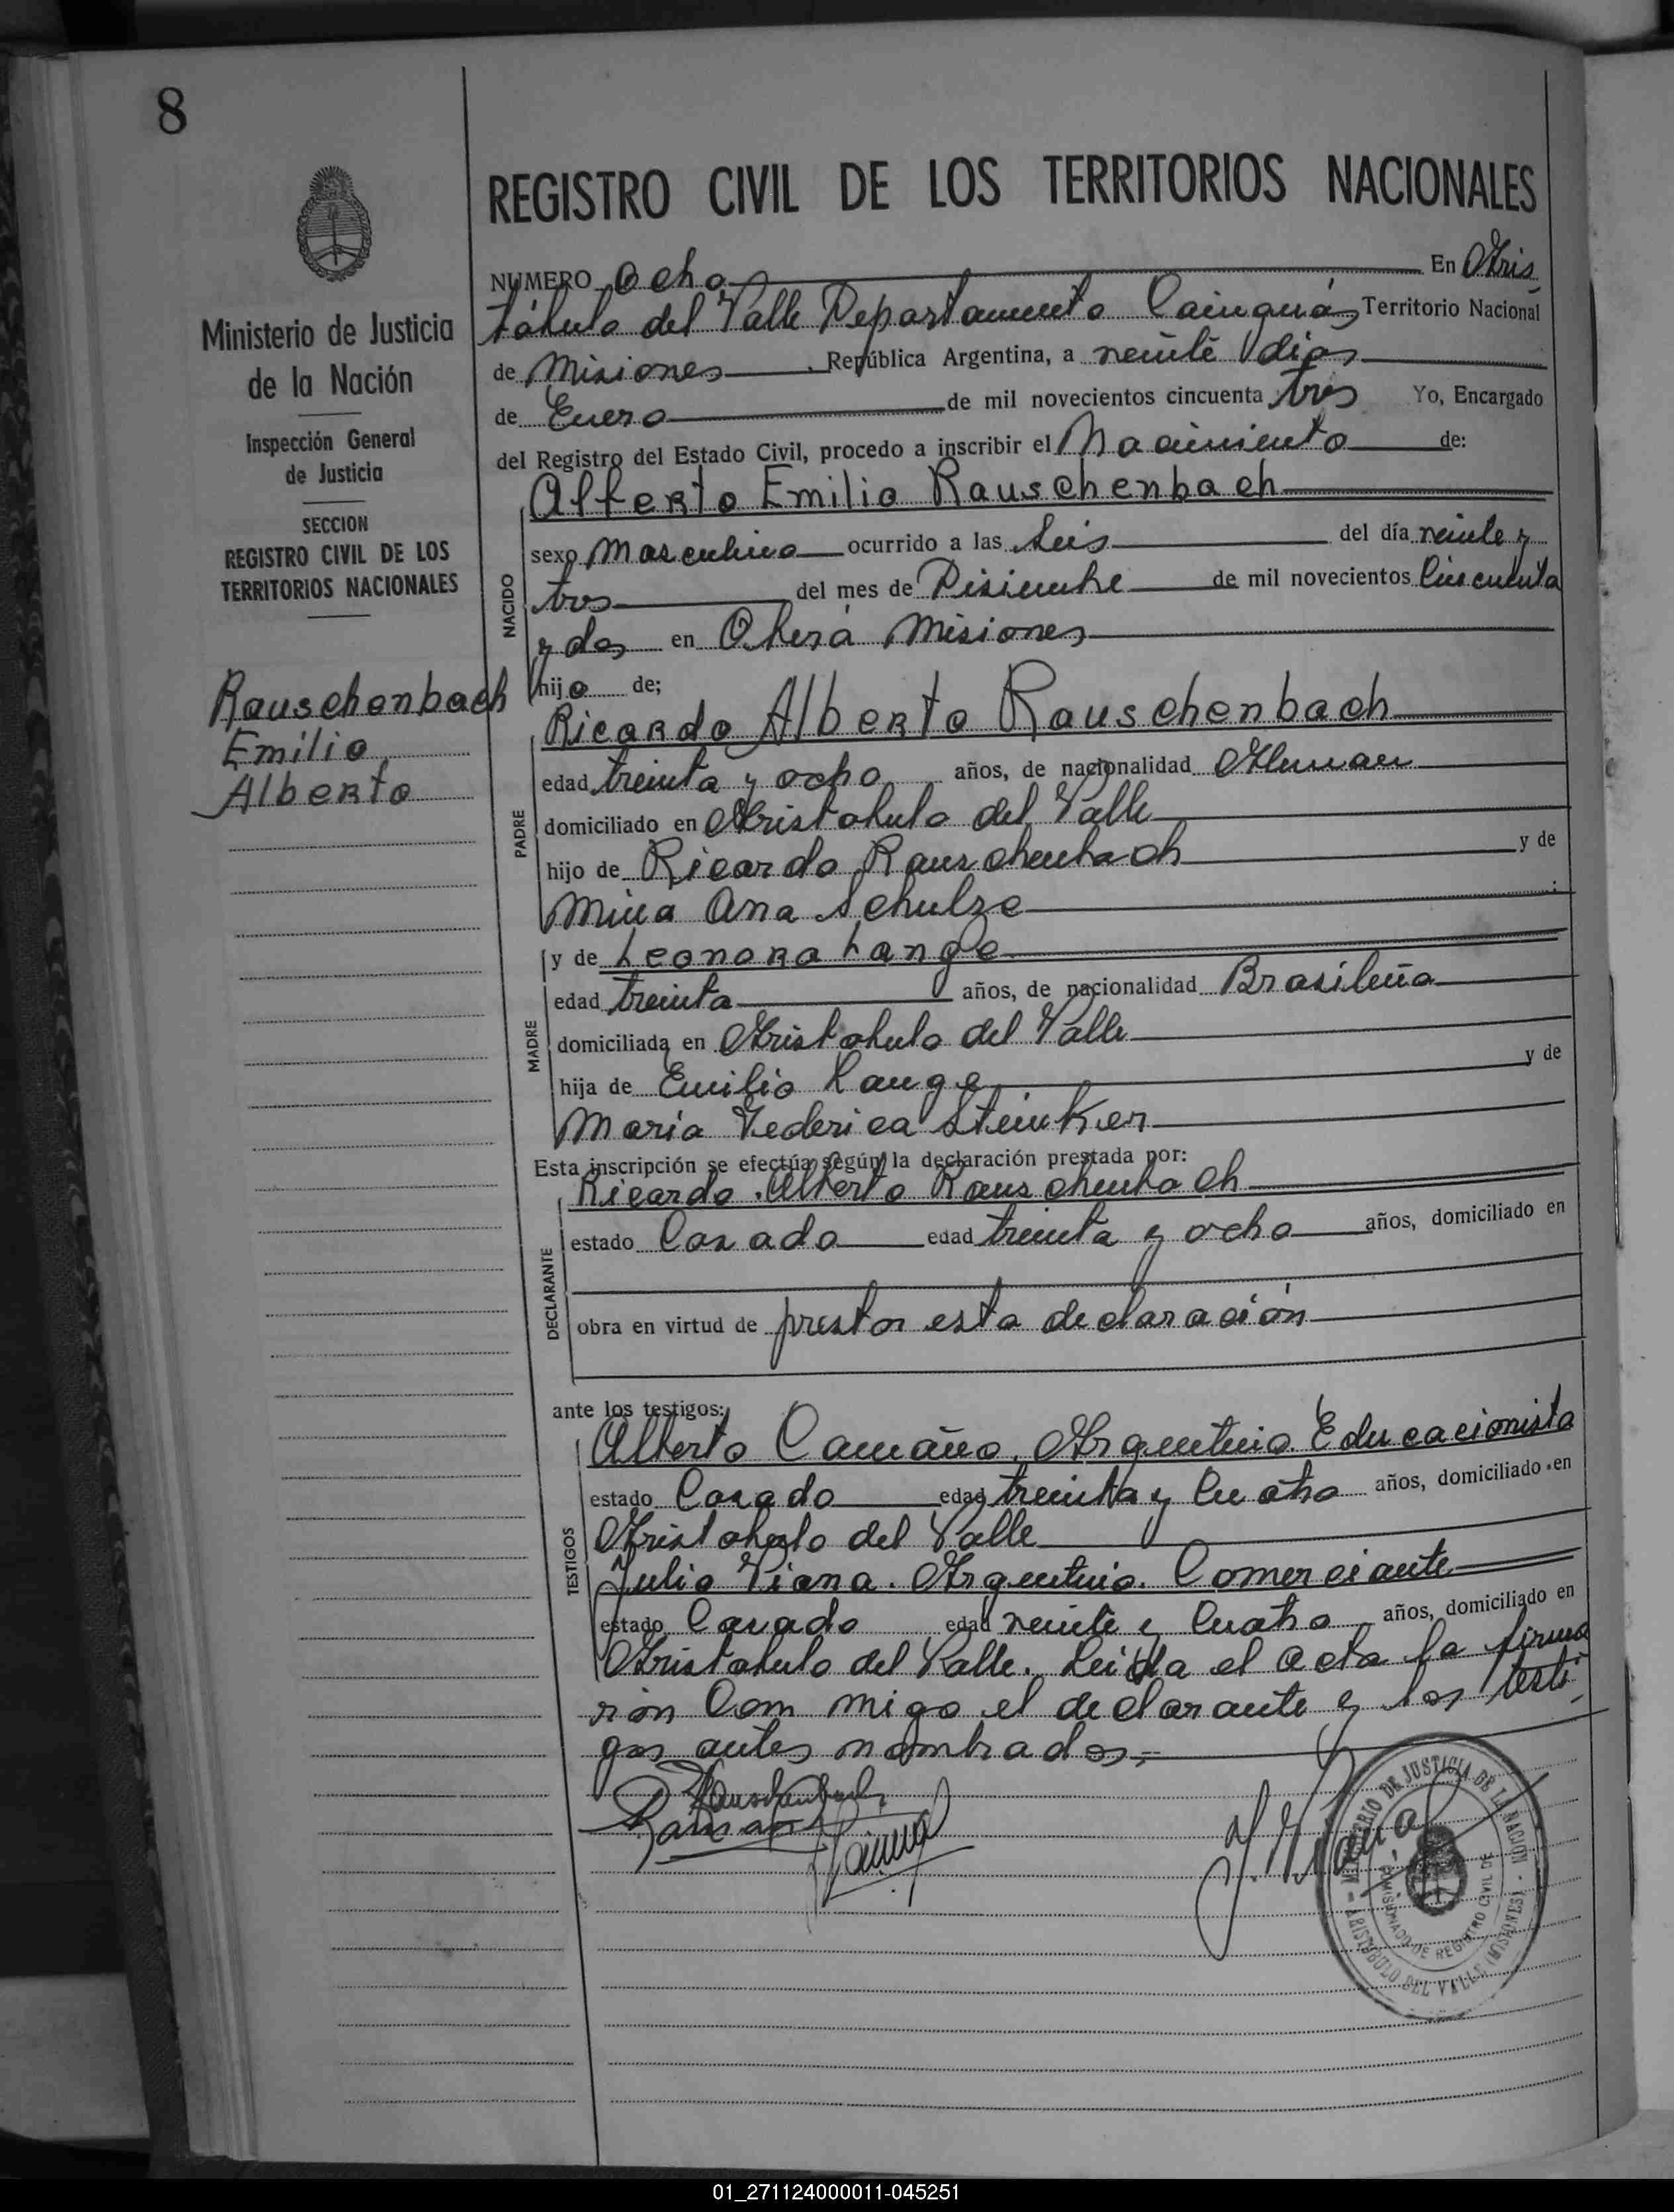 8
REGISTRO CIVIL DE LOS TERRITORIOS NACIONALES
Ministerio de Justicia
de la Nación
Inspección General
de Justicia
SECCION
REGISTRO CIVIL DE LOS
TERRITORIOS NACIONALES
Rauschenbach
Emilio
Alberto
NUMERO Ocho En Aris
tóbulo del Valle Departamento Cainguás Territorio Nacional
de Misiones República Argentina, a veinte dias
de Enero de mil novecientos cincuenta tres Yo, Encargado
del Registro del Estado Civil, procedo a inscribir el Nacimiento de:
NACIDO
Alberto Emilio Rauschenbach
sexo Masculino ocurrido a las Seis del día veinte y
tres del mes de Disiembre de mil novecientos Cincuenta
y dos en Oberá Misiones
hijo de;
PADRE
Ricardo Alberto Rauschenbach
edad treinta y ocho años, de nacionalidad Aleman
domiciliado en Aristobulo del Valle
hijo de Ricardo Rauschenbach y de
Mina Ana Schulze
MADRE
y de Leonora Lange
edad treinta años, de nacionalidad Brasileña
domiciliada en Aristobulo del Valle
hija de Emilio Lange y de
María Federica Steinker
Esta inscripción se efectúa según la declaración prestada por:
DECLARANTE
Ricardo Alberto Rauschenbach
estado Casado edad treinta y ocho años, domiciliado en
obra en virtud de prestar esta declaración
ante los testigos:
TESTIGOS
Alberto Camaño. Argentino. Educacionista
estado Casado edad treinta y Cuatro años, domiciliado en
Aristobulo del Valle
Julio Viana. Argentino. Comerciante
estado Casado edad veinte y Cuatro años, domiciliado en
Aristobulo del Valle. Leida el acta la firma
rón Com migo el declarante y los testi
gos antes nombrados.
Rauschenbach
J. Viana
MINISTERIO DE JUSTICIA DE LA NACION
COMISIONADO DE REGISTRO CIVIL DE
ARISTOBULO DEL VALLE (MISIONES)
01_271124000011-045251